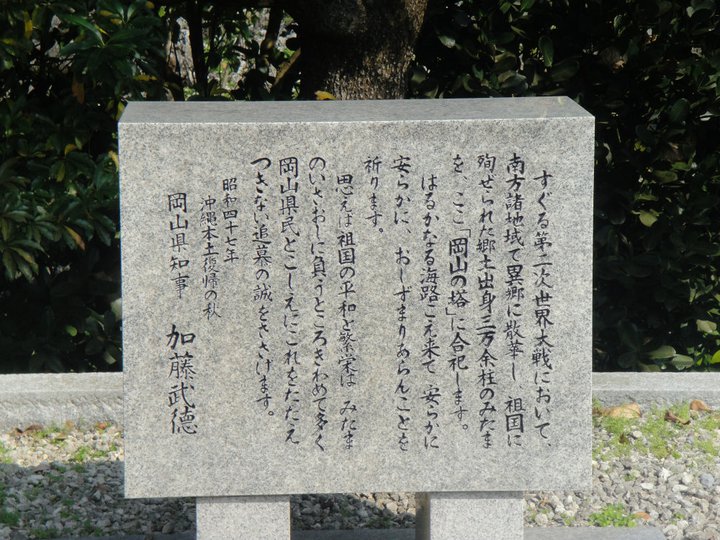 すぐる第二次世界大戦において、
南方諸地域で異郷に散華し 祖国に
殉ぜられた郷土出身三万余柱のみたま
を、ここ「岡山の塔」に合祀します。
はるかなる海路こえ来て 安らかに
安らかに、おしずまりあらんことを
祈ります。
思えば 祖国の平和と繁栄は みたま
のいさおしに負うところきわめて多く
岡山県民とこしえにこれをたたえ
つきない追慕の誠をささげます。
昭和四十七年
沖縄本土復帰の秋
岡山県知事 加藤武德